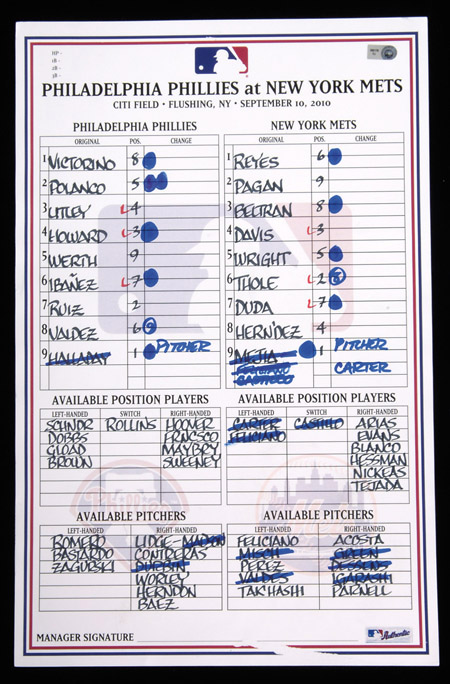 HP -
1B -
2B -
3B -
PHILADELPHIA PHILLIES at NEW YORK METS
CITI FIELD • FLUSHING, NY • SEPTEMBER 10, 2010
PHILADELPHIA PHILLIES
ORIGINAL POS. CHANGE
1 VICTORINO 8
2 POLANCO 5
3 UTLEY L 4
4 HOWARD L 3
5 WERTH 9
6 IBAÑEZ L 7
7 RUIZ 2
8 VALDEZ 6
9 HALLADAY 1 PITCHER
NEW YORK METS
ORIGINAL POS. CHANGE
1 REYES 6
2 PAGAN 9
3 BELTRAN 8
4 DAVIS L 3
5 WRIGHT 5
6 THOLE L 2
7 DUDA L 7
8 HERN'DEZ 4
9 MEJIA 1 PITCHER
FELICIANO
CASTILLO CARTER
AVAILABLE POSITION PLAYERS
LEFT-HANDED SWITCH RIGHT-HANDED
SCHNDR ROLLINS HOOVER
DOBBS FRNCSCO
GLOAD MAYBRY
BROWN SWEENEY
AVAILABLE POSITION PLAYERS
LEFT-HANDED SWITCH RIGHT-HANDED
CARTER CASTILLO ARIAS
FELICIANO EVANS
BLANCO
HESSMAN
NICKEAS
TEJADA
AVAILABLE PITCHERS
LEFT-HANDED RIGHT-HANDED
ROMERO LIDGE - MADSON
BASTARDO CONTRERAS
ZAGURSKI DURBIN
WORLEY
HERNDON
BAEZ
AVAILABLE PITCHERS
LEFT-HANDED RIGHT-HANDED
FELICIANO ACOSTA
MISCH GREEN
PEREZ DESSENS
VALDES IGARASHI
TAK'HASHI PARNELL
MANAGER SIGNATURE
Authentic